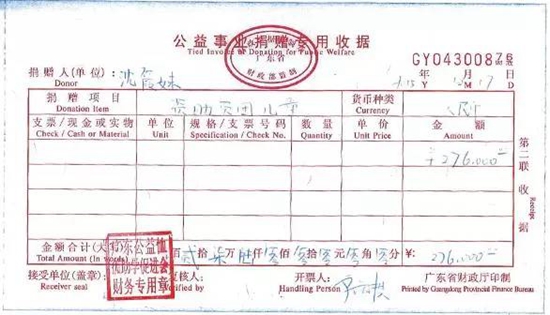 公益事业捐赠专用收据
Tied Invoice of Donation for Public Welfare
广东省
财政部监制
GY043008
捐赠人(单位):
Donor
年 Y 月 M 日 D
捐赠项目 资助贫困儿童 货币种类 人民币
Donation Item Currency
支票/现金或实物 单位 规格/支票号码 数量 单价 金额
Check / Cash or Material Unit Specification / Check No. Quantity Unit Price Amount
¥276.000
第二联 收据
Receipt
金额合计(大写) 佰 贰 拾 柒 万 陆 仟 零 佰 零 拾 零 元 零 角 零 分 ¥: 276.000
Total Amount (In words)
广东公益恤
孤助学促进会
财务专用章
接受单位(盖章): 复核人: 开票人: 广东省财政厅印制
Receiver seal Verified by Handling Person Printed by Guangdong Provincial Finance Bureau